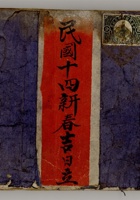 民國十四新春吉日立